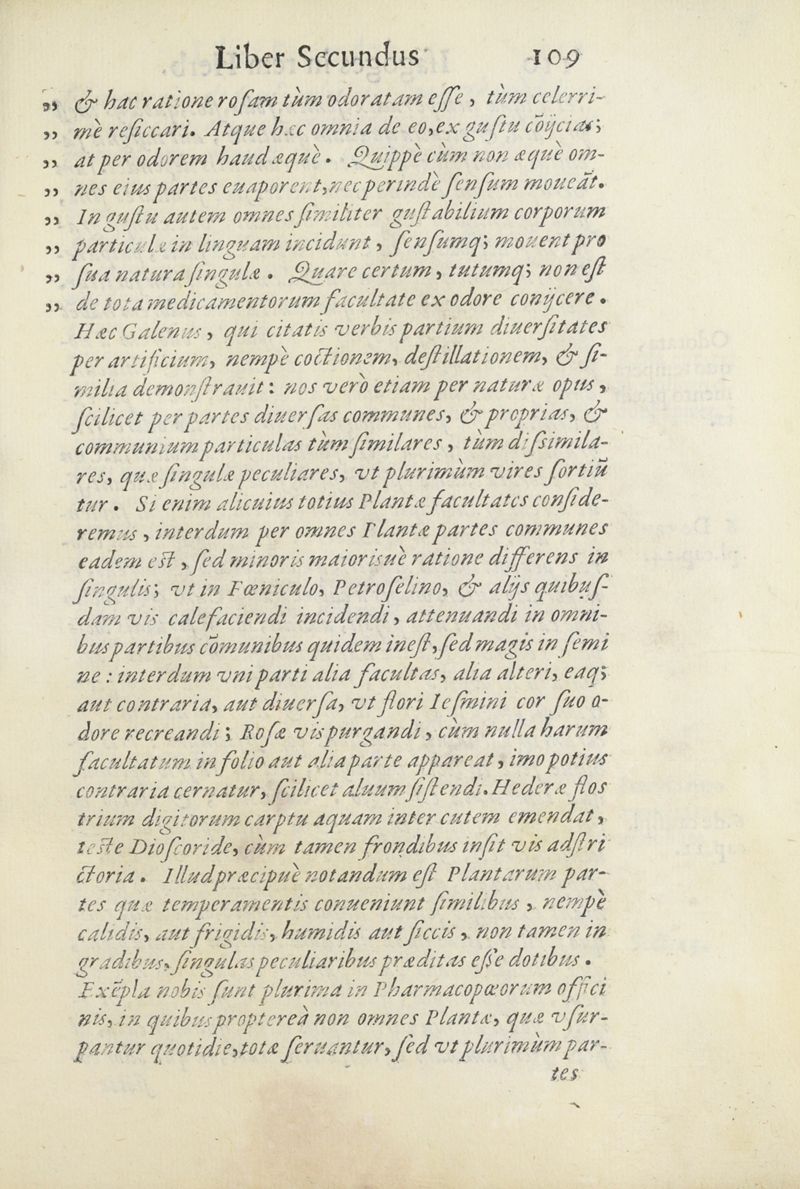 Liber Secundus 109
„ & hac ratione rosam tùm odoratam esse, tùm celerri-
„ mè resiccari. Atque hæc omnia de eo, ex gustu cōijcias;
„ at per odorem haud æquè. Quippè cùm non æquè om-
„ nes eius partes euaporent, nec perindè sensum moueāt.
„ In gustu autem omnes similiter gustabilium corporum
„ particulæ in linguam incidunt, sensumq; mouent pro
„ sua natura singulæ. Quare certum, tutumq; non est
„ de tota medicamentorum facultate ex odore conijcere.
Hæc Galenus, qui citatis verbis partium diuersitates
per artificium, nempè coctionem, destillationem, & si-
milia demonstrauit: nos verò etiam per naturæ opus,
scilicet per partes diuersas communes, & proprias, &
communium particulas tùm similares, tùm dissimila-
res, quæ singulæ peculiares, vt plurimùm vires sortiū
tur. Si enim alicuius totius Plantæ facultates conside-
remus, interdum per omnes Plantæ partes communes
eadem est, sed minoris maiorisuè ratione differens in
singulis; vt in Fœniculo, Petroselino, & alijs quibus-
dam vis calefaciendi incidendi, attenuandi in omni-
bus partibus cōmunibus quidem inest, sed magis in semi
ne: interdum vni parti alia facultas, alia alteri, eaq;
aut contraria, aut diuersa, vt flori Iesmini cor suo o-
dore recreandi; Rosæ vis purgandi, cùm nulla harum
facultatum in folio aut alia parte appareat, imo potius
contraria cernatur, scilicet aluum sistendi. Hederæ flos
trium digitorum carptu aquam inter cutem emendat,
teste Dioscoride, cùm tamen frondibus insit vis adstri
ctoria. Illud præcipuè notandum est Plantarum par-
tes quæ temperamentis conueniunt similibus, nempè
calidis, aut frigidis, humidis aut siccis, non tamen in
gradibus, singulas peculiaribus præditas esse dotibus.
Exēpla nobis sunt plurima in Pharmacopœorum offici
nis, in quibus proptereà non omnes Plantæ, quæ vsur-
pantur quotidie, totæ seruantur, sed vt plurimùm par-
tes